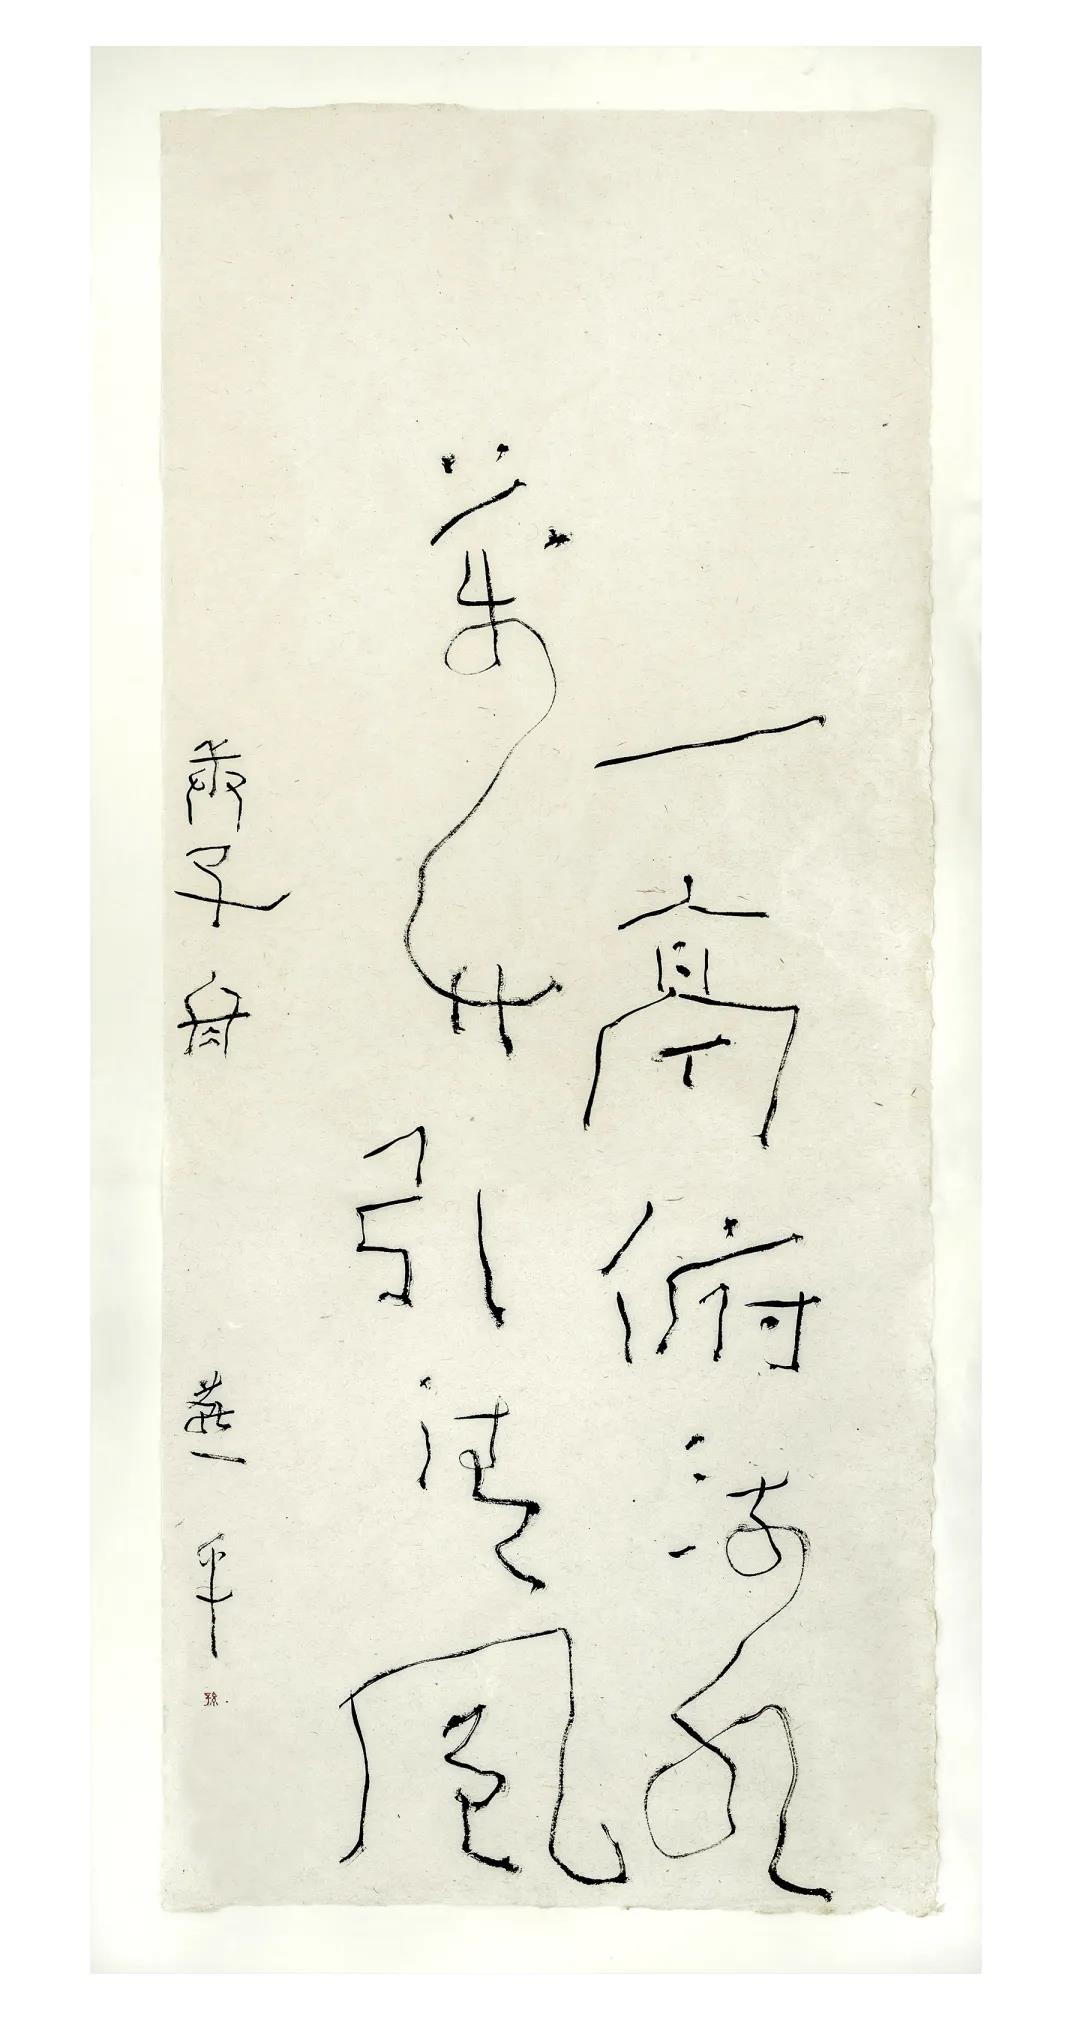 一亭俯流水
萬竹引清風
庚子冬 燕平
孫